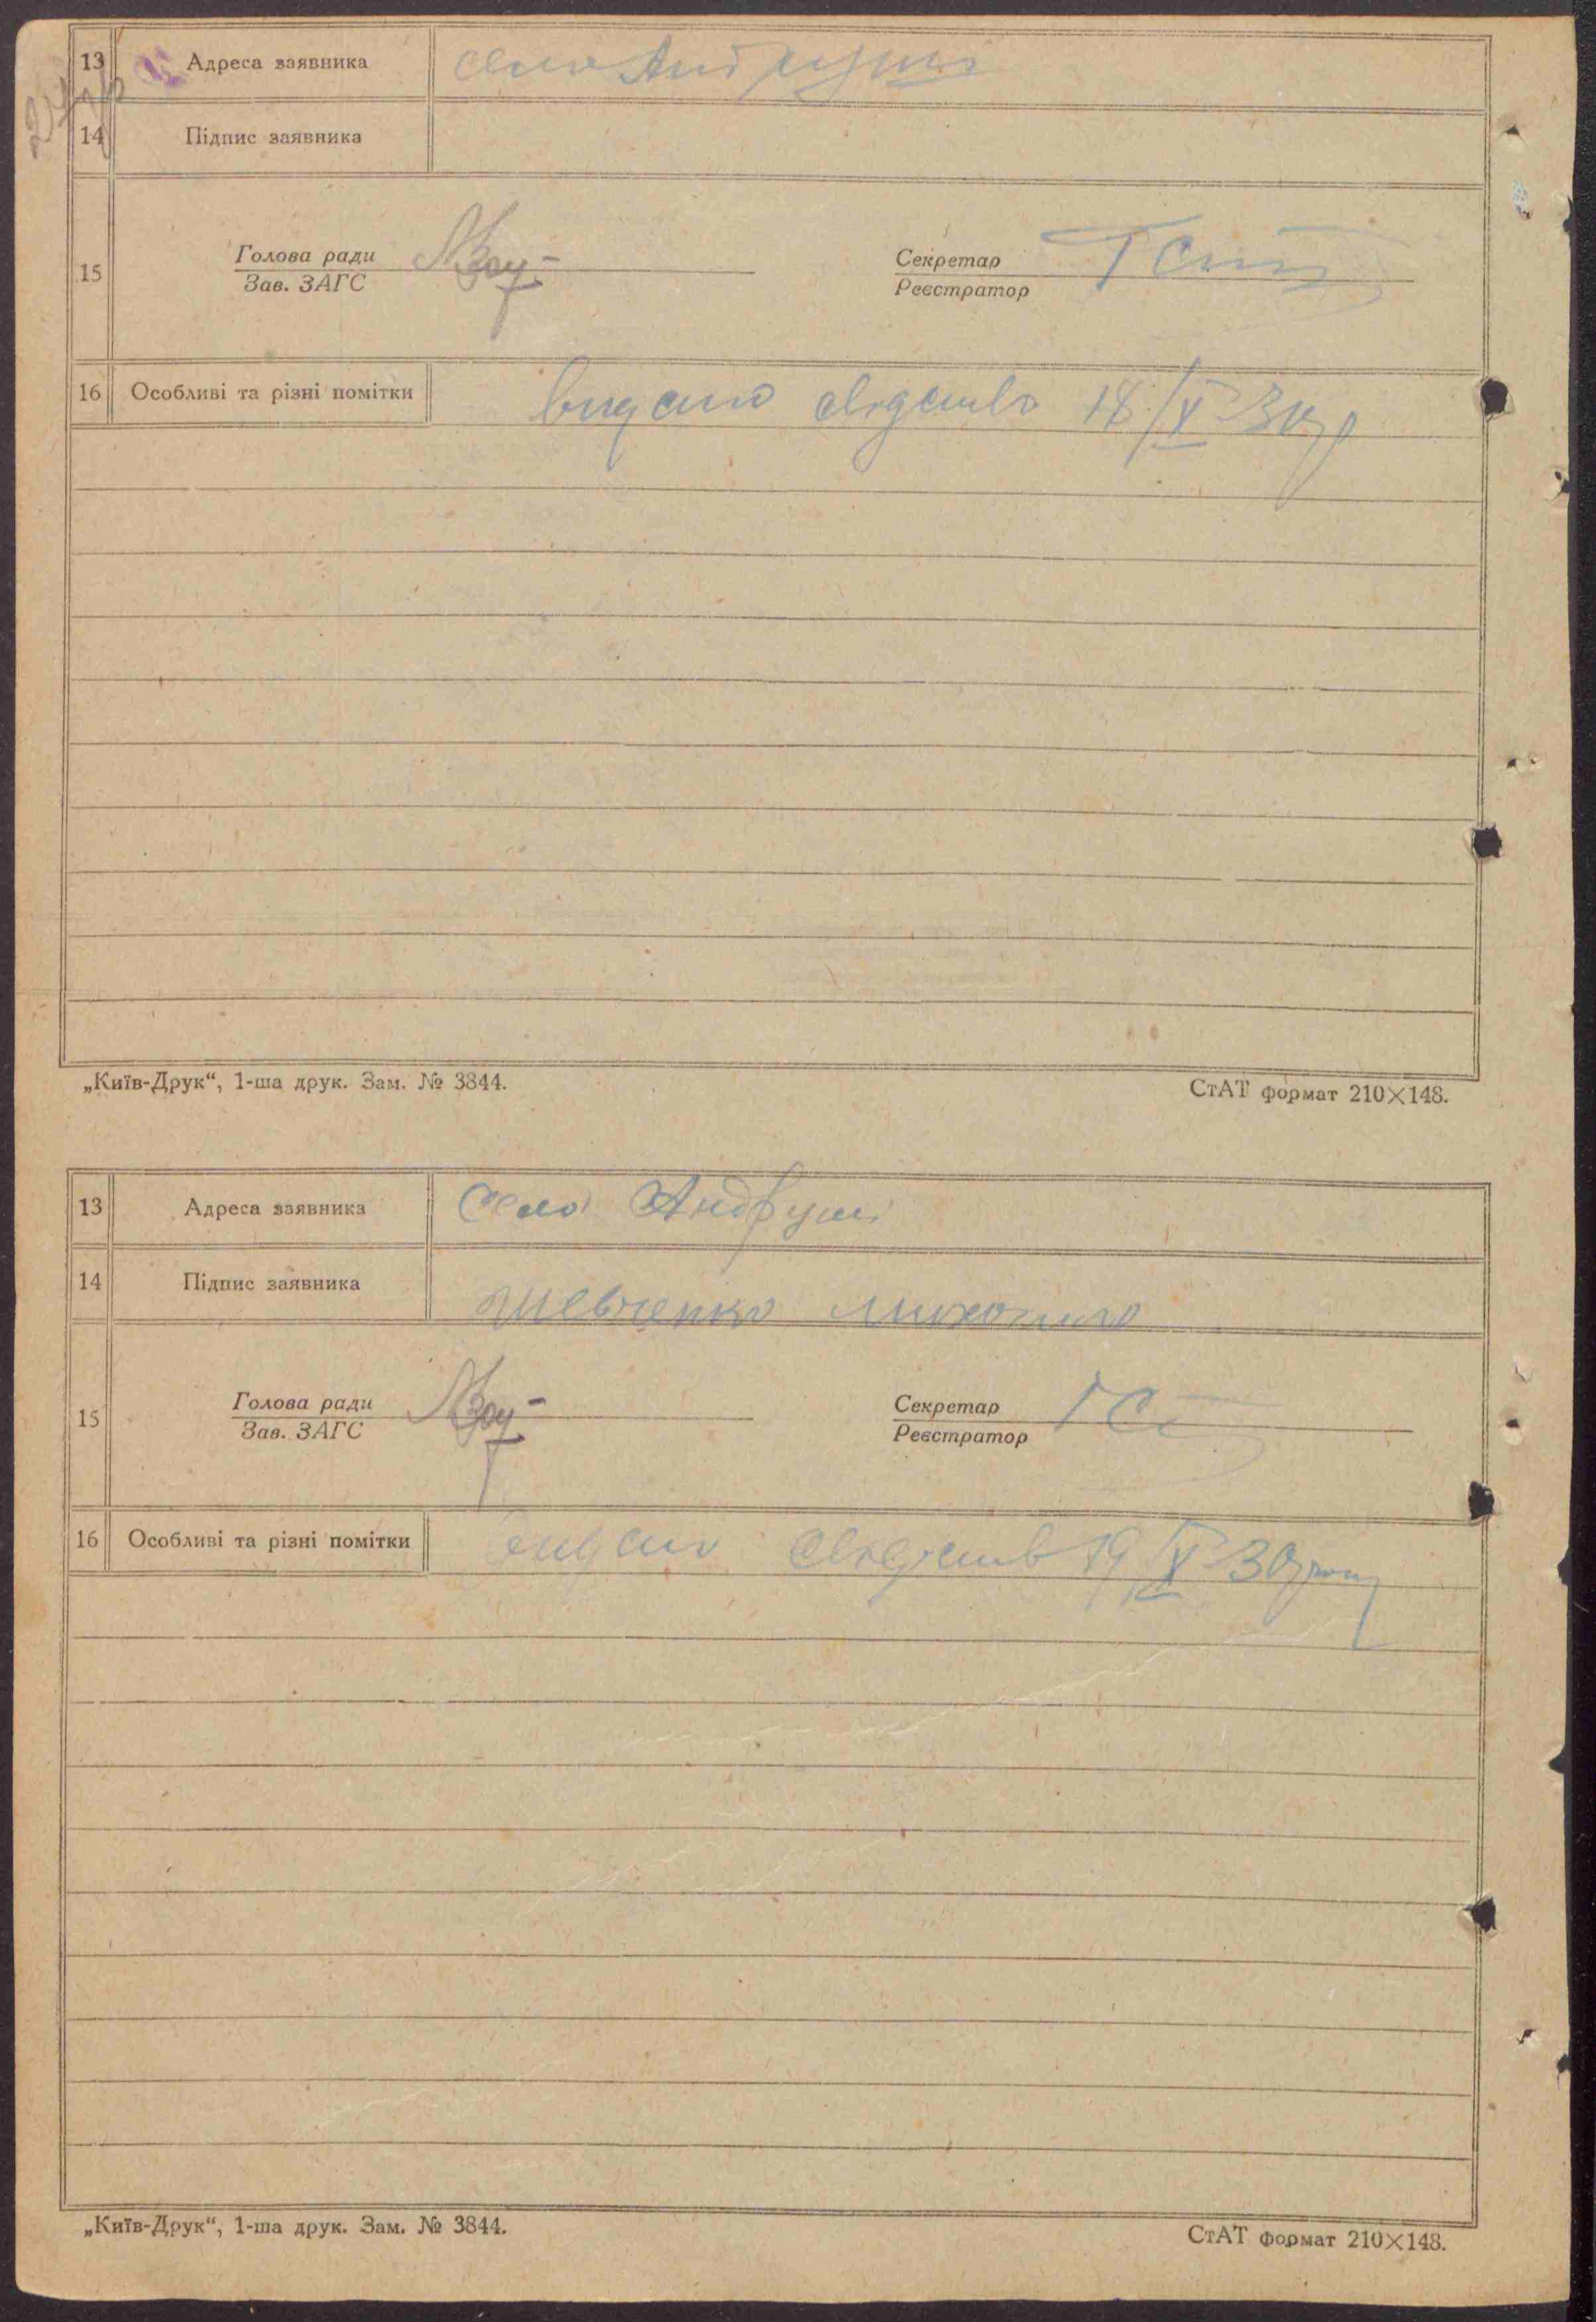 13 Адреса заявника село Андруши
14 Підпис заявника
15 Голова ради Секретар
Зав. ЗАГС Реєстратор
16 Особливі та різні помітки видано свідоцтво 18/X 30 р
„Київ-Друк“, 1-ша друк. Зам. № 3844. СтАТ формат 210×148.
13 Адреса заявника село Андруші
14 Підпис заявника Шевченко
15 Голова ради Секретар
Зав. ЗАГС Реєстратор
16 Особливі та різні помітки видано 19/X 30 року
„Київ-Друк“, 1-ша друк. Зам. № 3844. СтАТ формат 210×148.